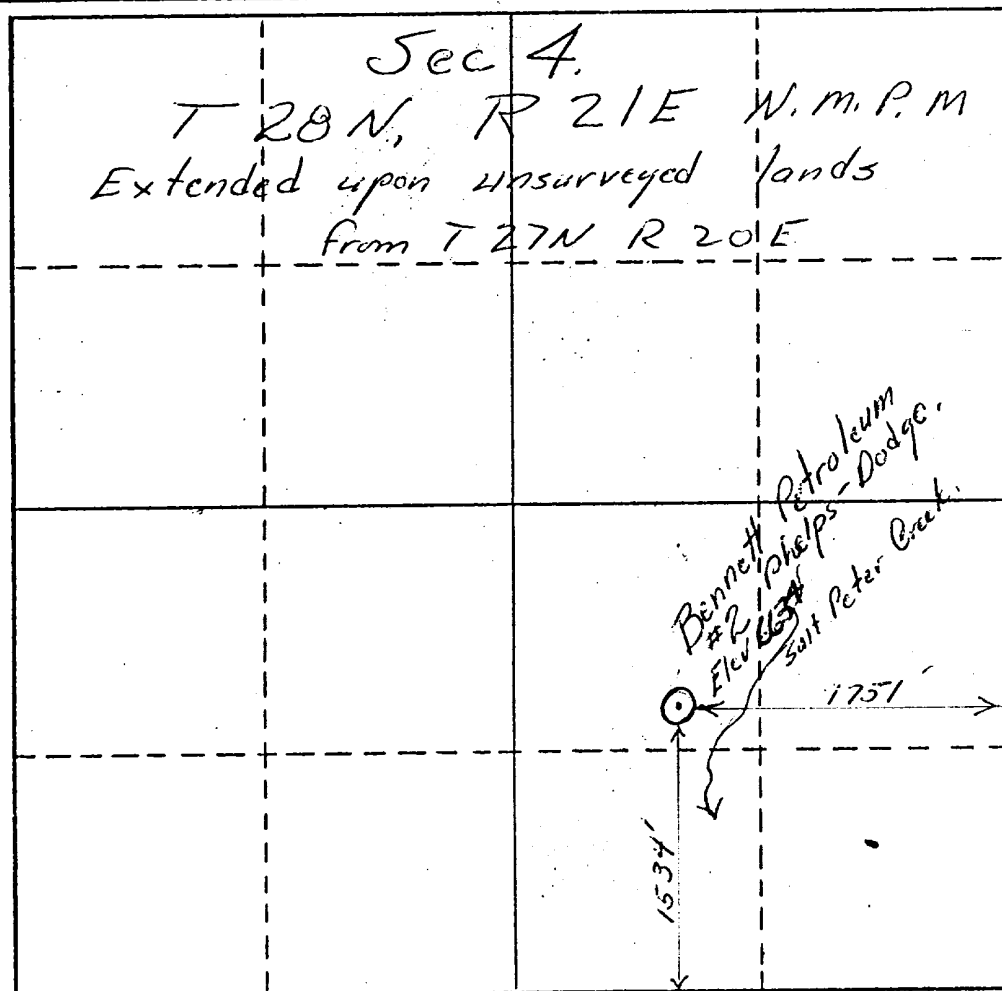 Sec 4.
T 28 N, R 21 E N.M.P.M
Extended upon unsurveyed lands
from T 27N R 20 E
Bennett Petroleum
#2 Phelps-Dodge.
Elev
Salt Peter Creek.
1751'
1534'